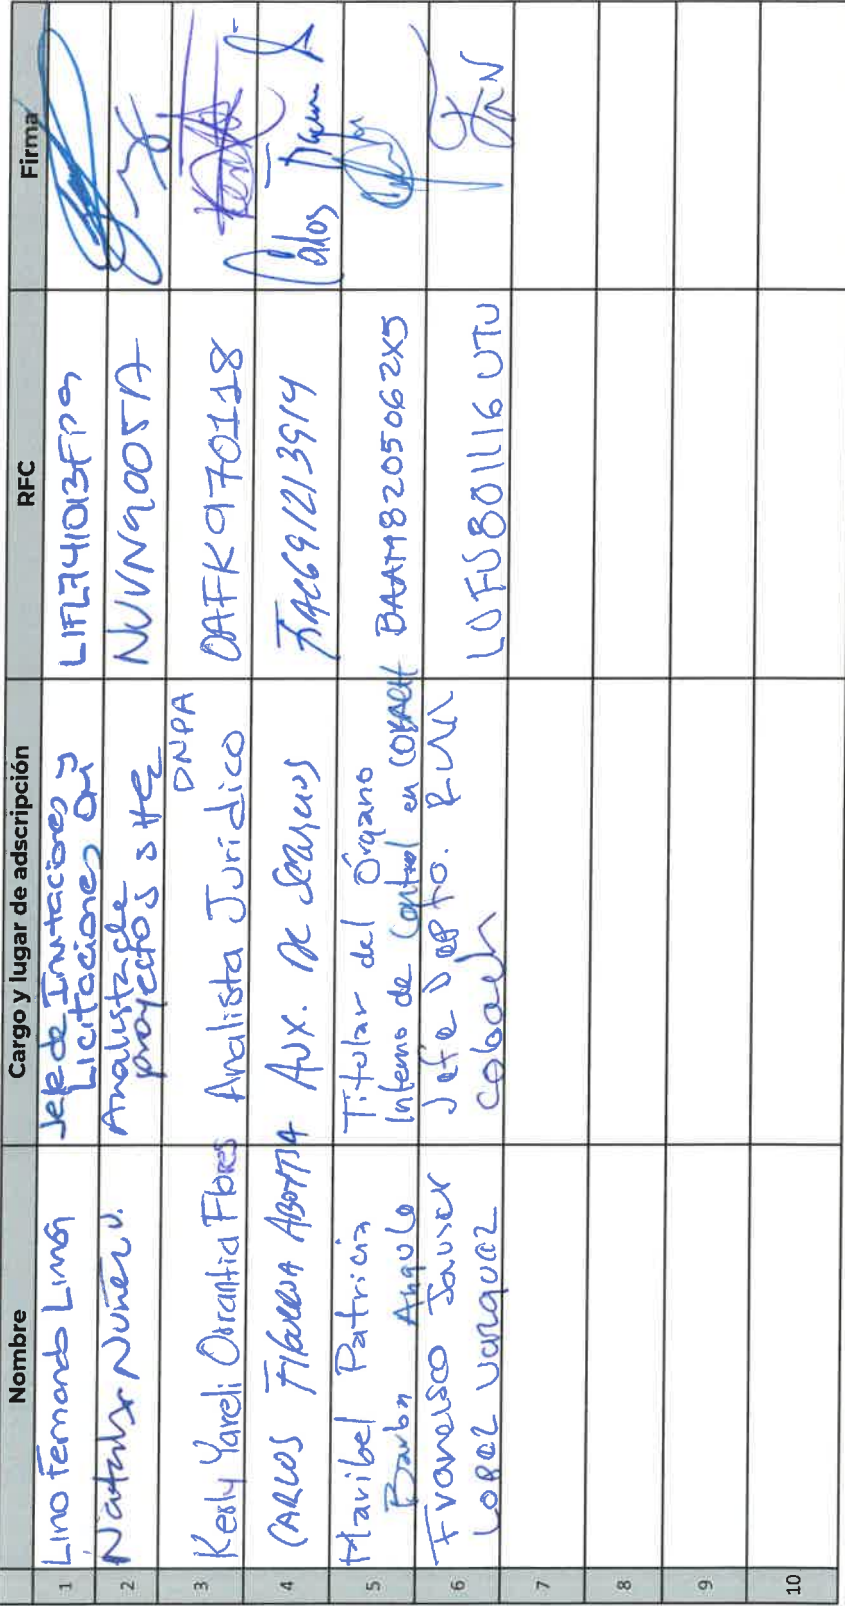 Nombre Cargo y lugar de adscripción RFC Firma
1 Lino Fernando Lima Jefe de Invitaciones y
Licitaciones OM LIFL741013FP9
2 Natalia Nuñez V. Analista de
proyectos SHE NUVN90005A
3 Kesly Yareli Orrantia Flores Analista Jurídico DNPA OAFK970118
4 CARLOS FIGUEROA Aux. De Servicios FIAC691213914
Carlos
5 Maribel Patricia
Barba Angulo Titular del Órgano
Interno de Control en COBACH BAAM8205062X5
6 Francisco Javier
Lopez Vazquez Jefe Depto.
Cobach
7
8
9
10